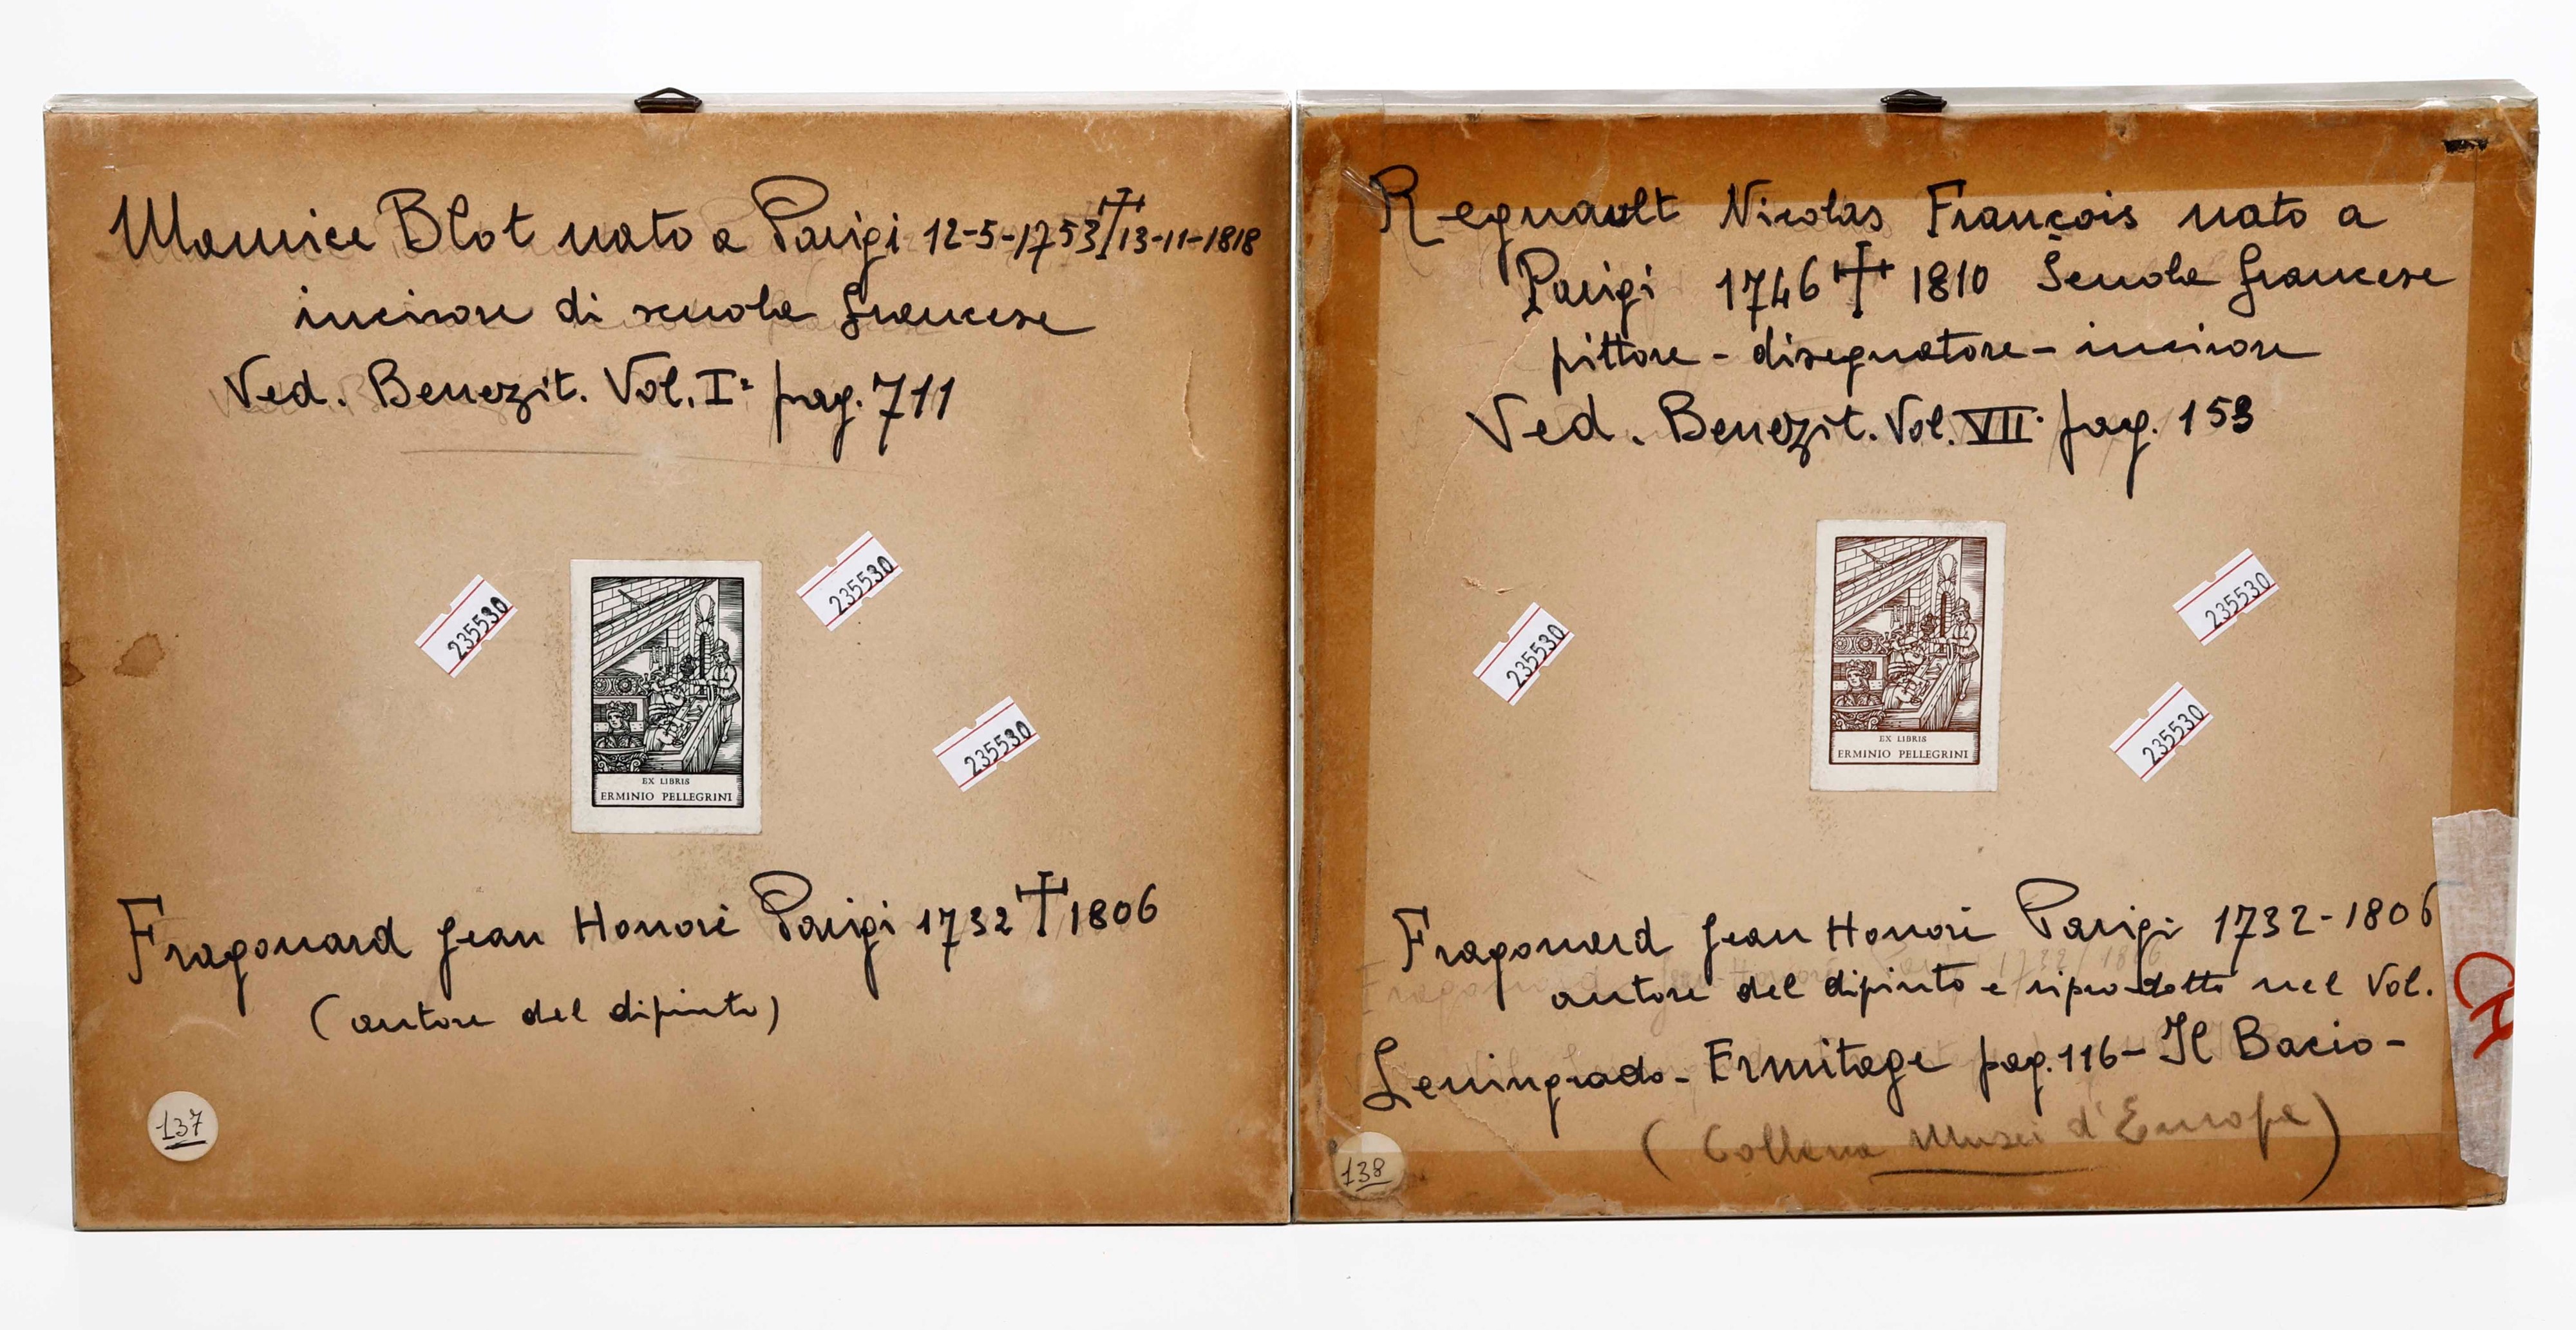 Maurice Blot nato a Parigi 12-5-1753 † 13-11-1818
incisore di scuola francese
Ved. Benezit. Vol. I° pag. 711
235530
235530
235530
EX LIBRIS
ERMINIO PELLEGRINI
Fragonard Jean Honoré Parigi 1732 † 1806
(autore del dipinto)
137
Regnault Nicolas François nato a
Parigi 1746 † 1810 Scuola francese
pittore - disegnatore - incisore
Ved. Benezit. Vol. VII. pag. 153
235530
235530
235530
EX LIBRIS
ERMINIO PELLEGRINI
Fragonard Jean Honoré Parigi 1732-1806
autore del dipinto e riprodotto nel Vol.
Leningrado - Ermitage pag. 116 - Il Bacio -
(Collana Musei d'Europa)
138